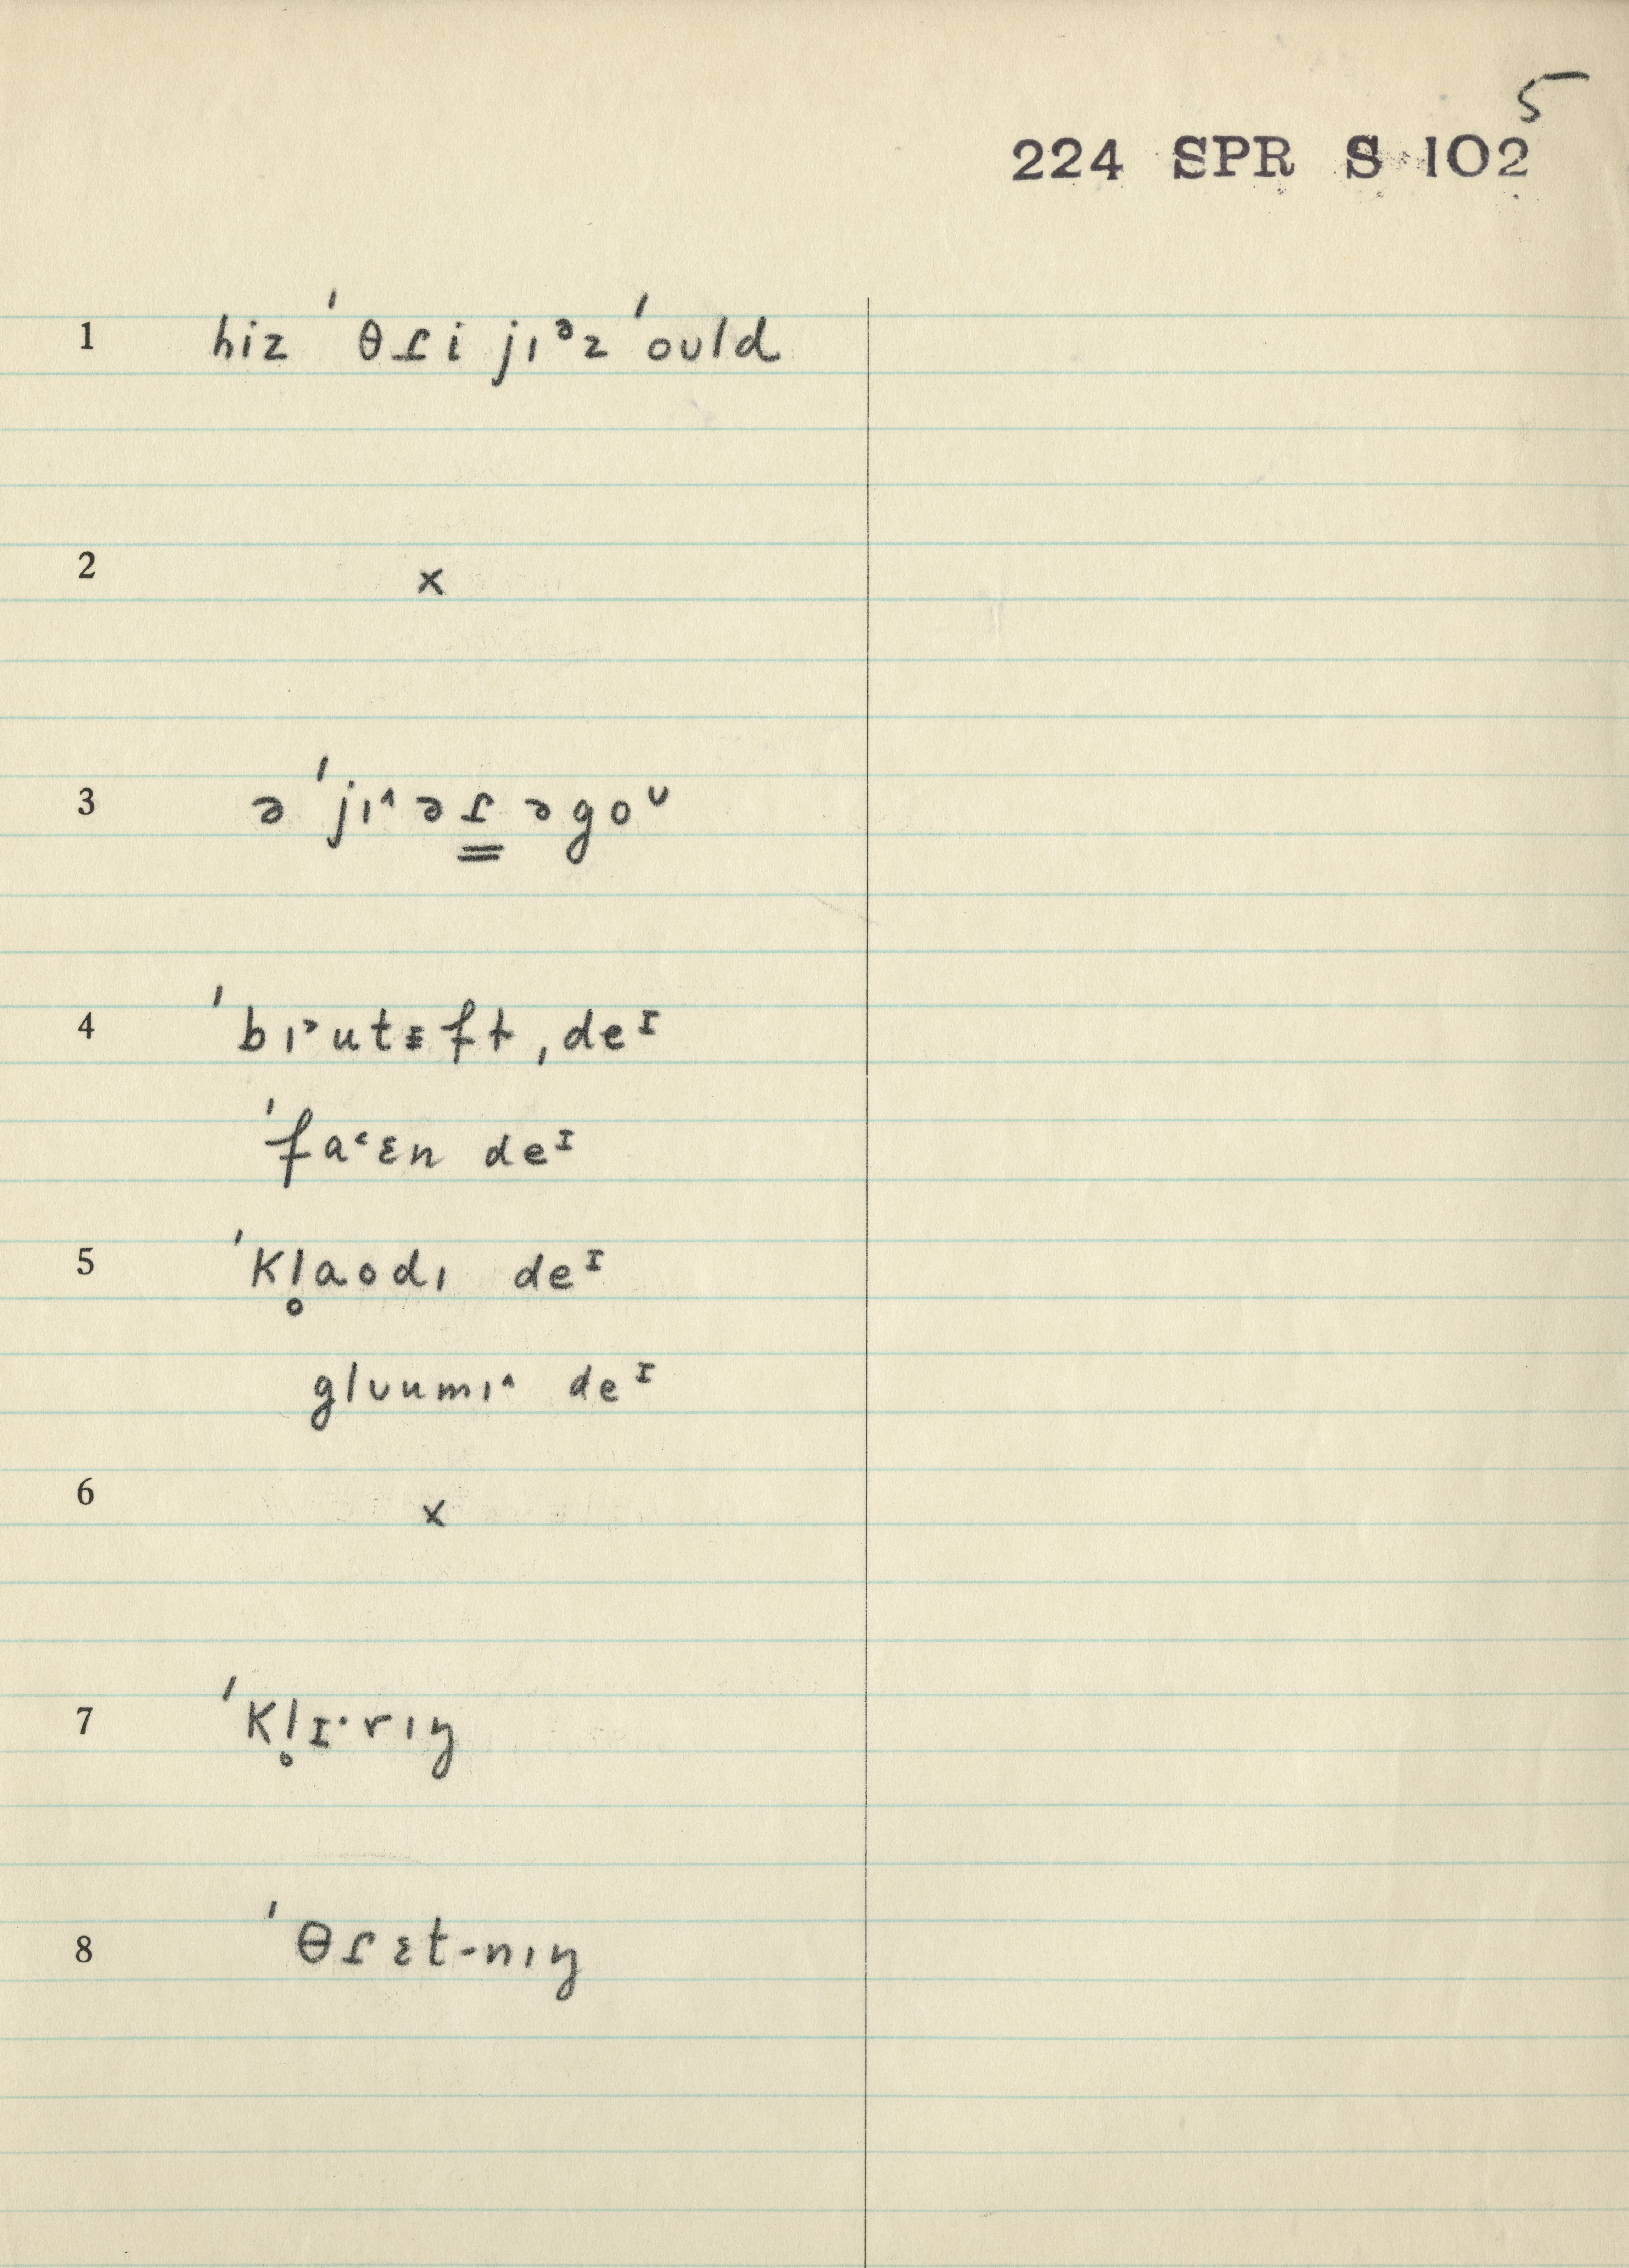 5
224 SPR S 102
1 hiz ˈθɾi jɪᵊz ˈould
2 x
3 ə ˈjɪ^əɾ̳ əgoᶷ
4 ˈbɪ˃utɪ̵ft ,deᴵ
ˈfa˂ɛn deᴵ
5 ˈkl̥aodɪ deᴵ
glʊumɪ^ deᴵ
6 x
7 ˈkl̥ɪ·rɪŋ
8 ˈθɾɛt-nɪŋ